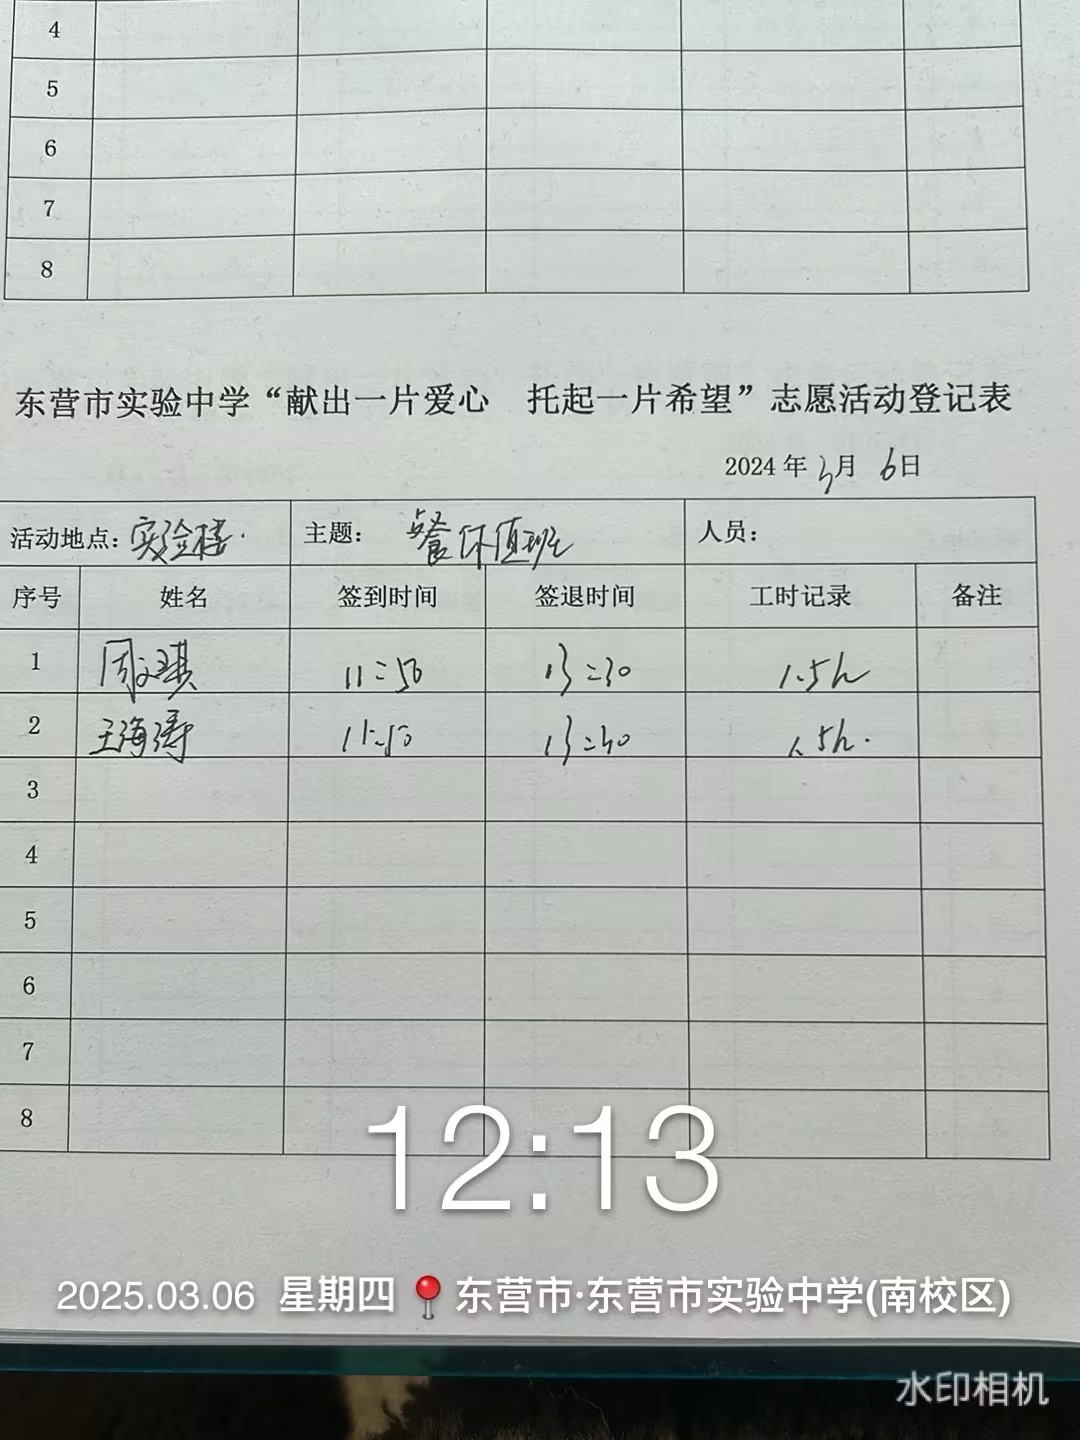 4
5
6
7
8
东营市实验中学“献出一片爱心 托起一片希望”志愿活动登记表
2024 年 3月 6日
活动地点：实验楼. 主题： 餐休值班 人员：
序号 姓名 签到时间 签退时间 工时记录 备注
1 周文琪 11:50 13:30 1.5h
2 王海涛 11:50 13:30 1.5h.
3
4
5
6
7
8
12:13
2025.03.06 星期四 东营市·东营市实验中学(南校区)
水印相机